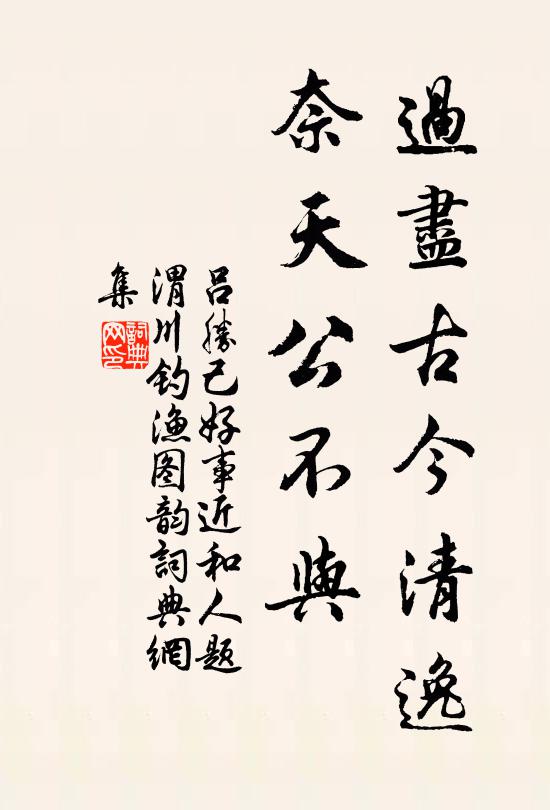 過盡古今清逸
奈天公不與
吕勝己好事近和人題
渭川钓渔图韵詞典網
集
詞典網印